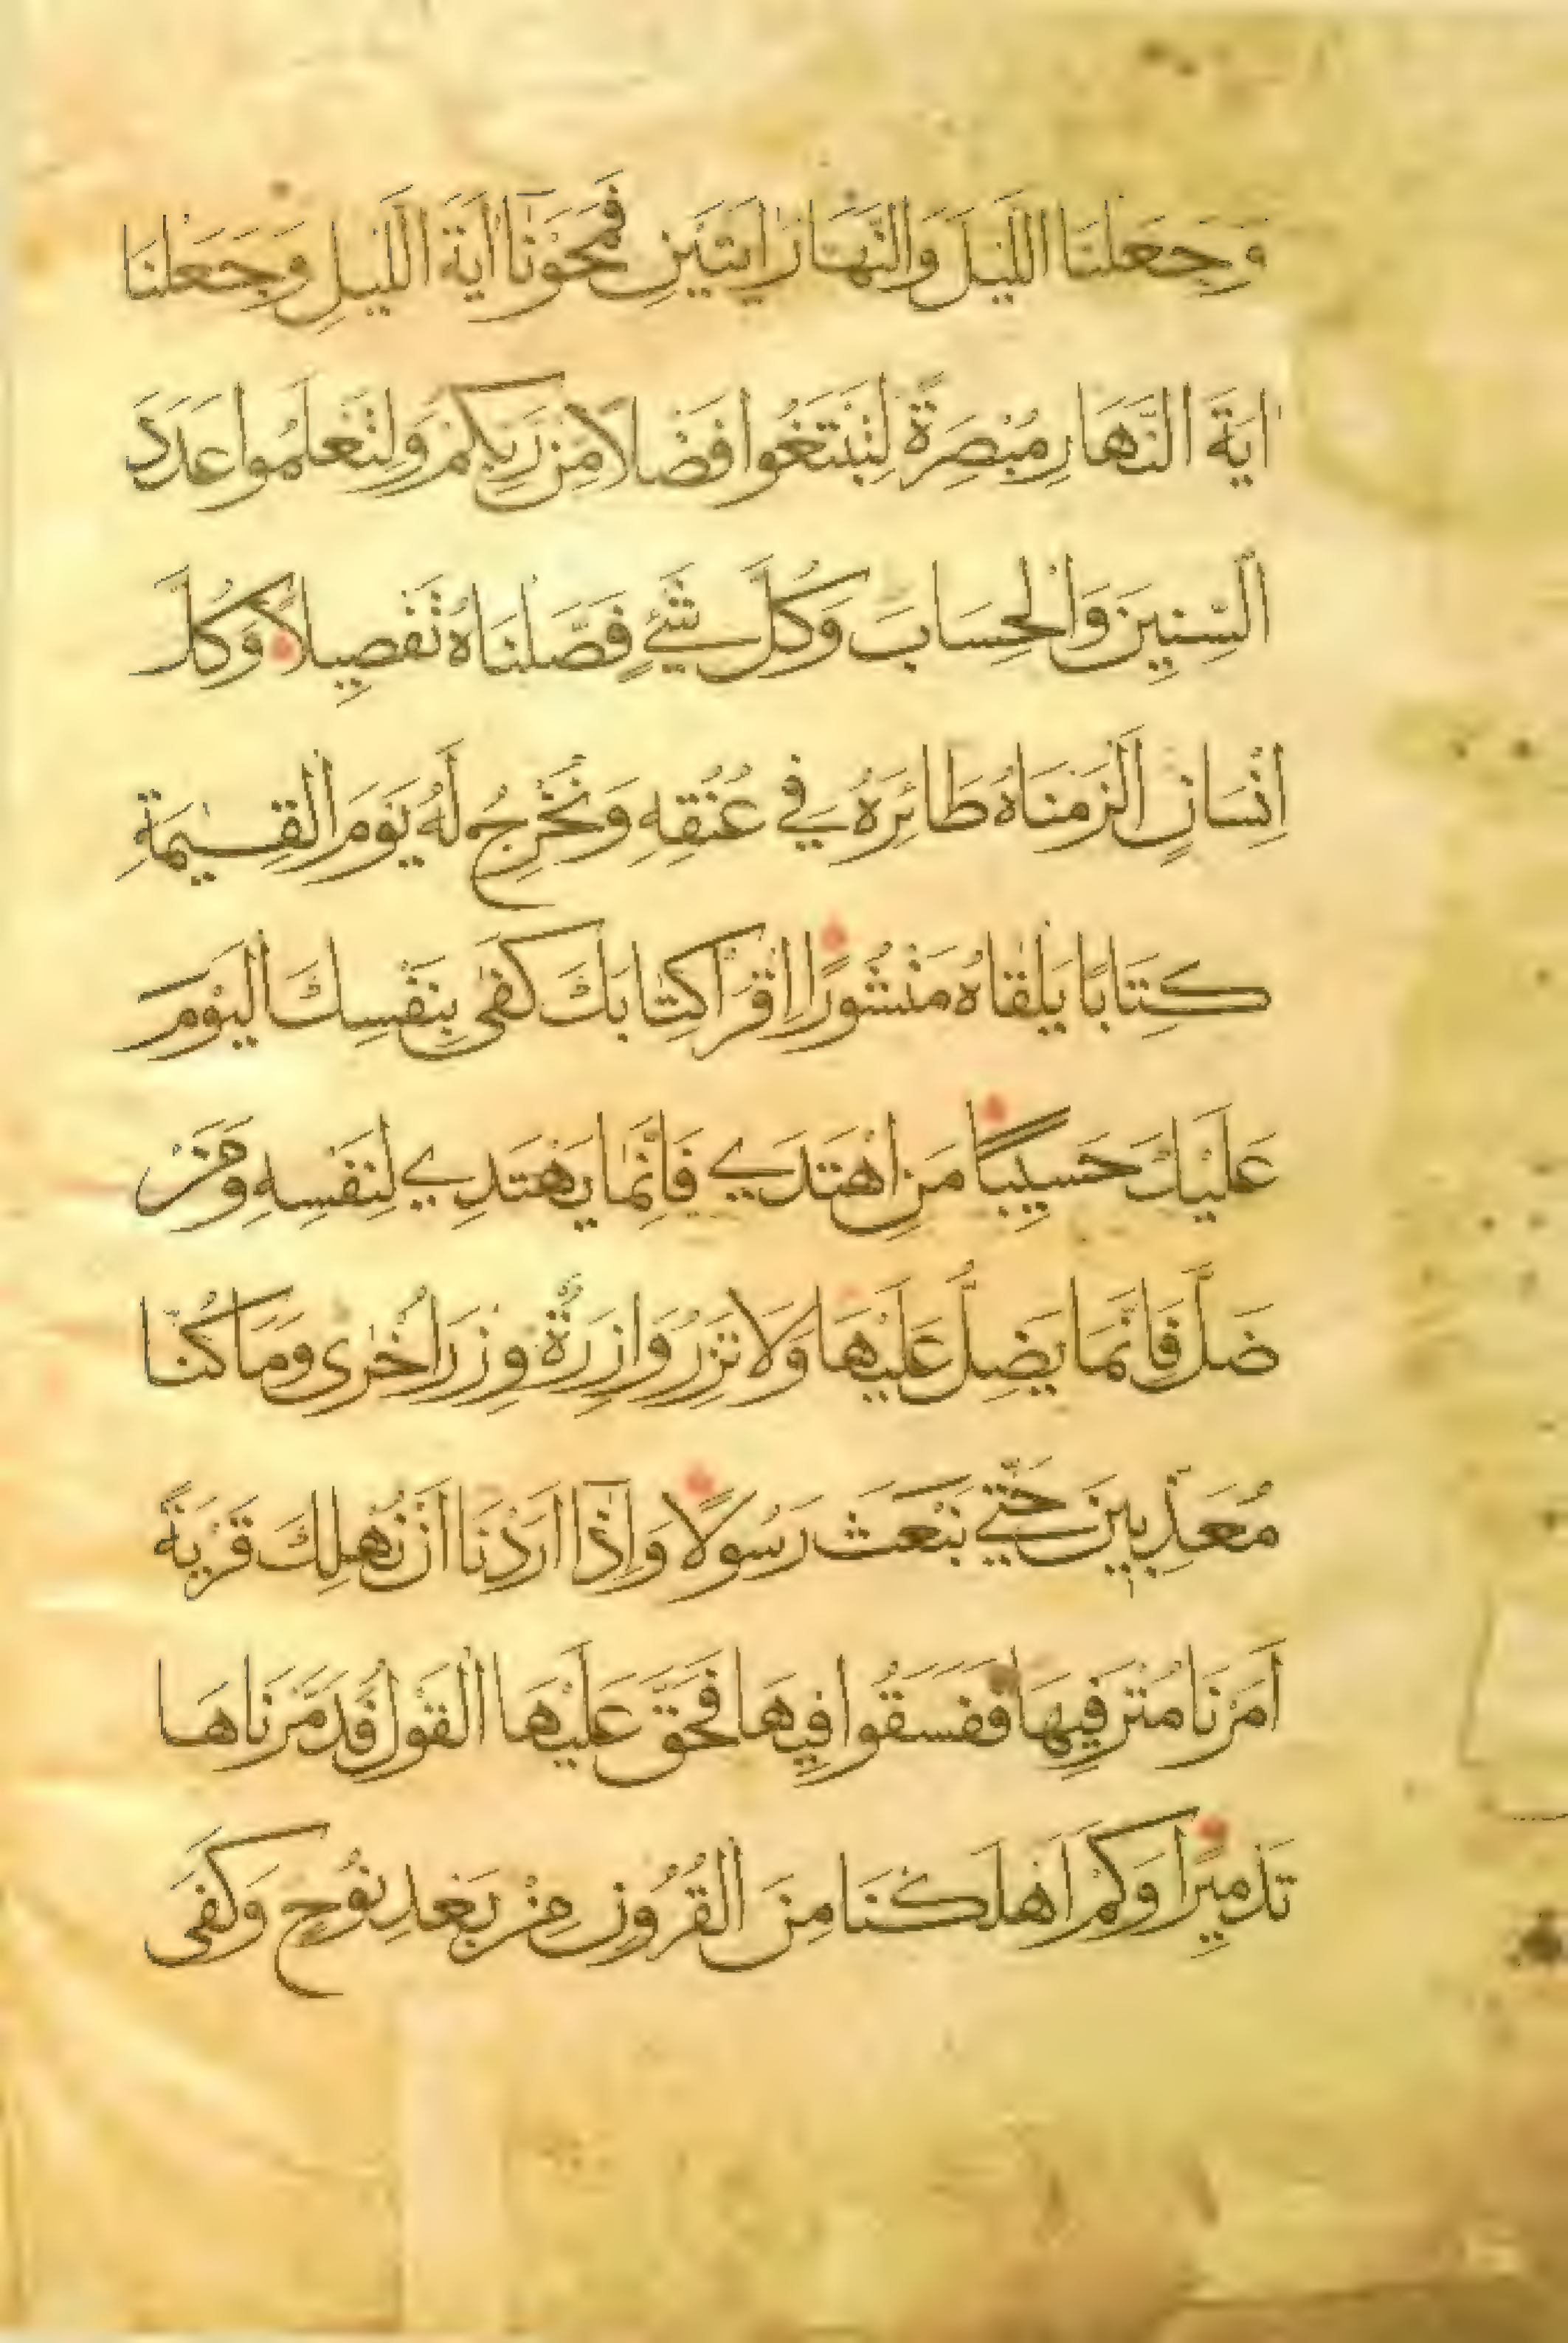 وَجَعَلْنَا اللَّيْلَ وَالنَّهَارَ ايَتَيْنِ فَمَحَوْنَا ايَةَ اللَّيْلِ وَجَعَلْنَا
ايَةَ النَّهَارِ مُبْصِرَةً لِتَبْتَغُوا فَضْلًا مِنْ رَبِّكُمْ وَلِتَعْلَمُوا عَدَدَ
السِّنِينَ وَالْحِسَابَ وَكُلَّ شَيْءٍ فَصَّلْنَاهُ تَفْصِيلًا وَكُلَّ
اِنْسَانٍ اَلْزَمْنَاهُ طَائِرَهُ فِي عُنُقِهِ وَنُخْرِجُ لَهُ يَوْمَ الْقِيٰمَةِ
كِتَابًا يَلْقَاهُ مَنْشُورًا اِقْرَا كِتَابَكَ كَفٰى بِنَفْسِكَ الْيَوْمَ
عَلَيْكَ حَسِيبًا مَنِ اهْتَدَي فَاِنَّمَا يَهْتَدِي لِنَفْسِهِ وَمَنْ
ضَلَّ فَاِنَّمَا يَضِلُّ عَلَيْهَا وَلَا تَزِرُ وَازِرَةٌ وِزْرَ اُخْرٰى وَمَا كُنَّا
مُعَذِّبِينَ حَتَّي نَبْعَثَ رَسُولًا وَاِذَا اَرَدْنَا اَنْ نُهْلِكَ قَرْيَةً
اَمَرْنَا مُتْرَفِيهَا فَفَسَقُوا فِيهَا فَحَقَّ عَلَيْهَا الْقَوْلُ فَدَمَّرْنَاهَا
تَدْمِيرًا وَكَمْ اَهْلَكْنَا مِنَ الْقُرُونِ مِنْ بَعْدِ نُوحٍ وَكَفَى